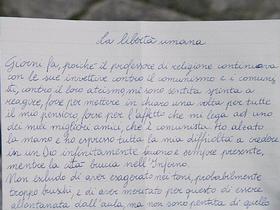 La libertà umana
Giorni fa, poiché il professore di religione continuava
con le sue invettive contro il comunismo e i comuni-
sti, contro il loro ateismo, mi sono sentita spinta a
reagire, forse per mettere in chiaro una volta per tutte
il mio pensiero, forse per l'affetto che mi lega ad uno
dei miei migliori amici, che è comunista. Ho alzato
la mano e ho espresso tutta la mia difficoltà a credere
in un Dio infinitamente buono e sempre presente,
mentre la sta brucia nell'Inferno.
Non escludo di aver esagerato nei toni, probabilmente
troppo bruschi, e di aver meritato per questo di essere
allontanata dall'aula, ma non sono pentita di quello